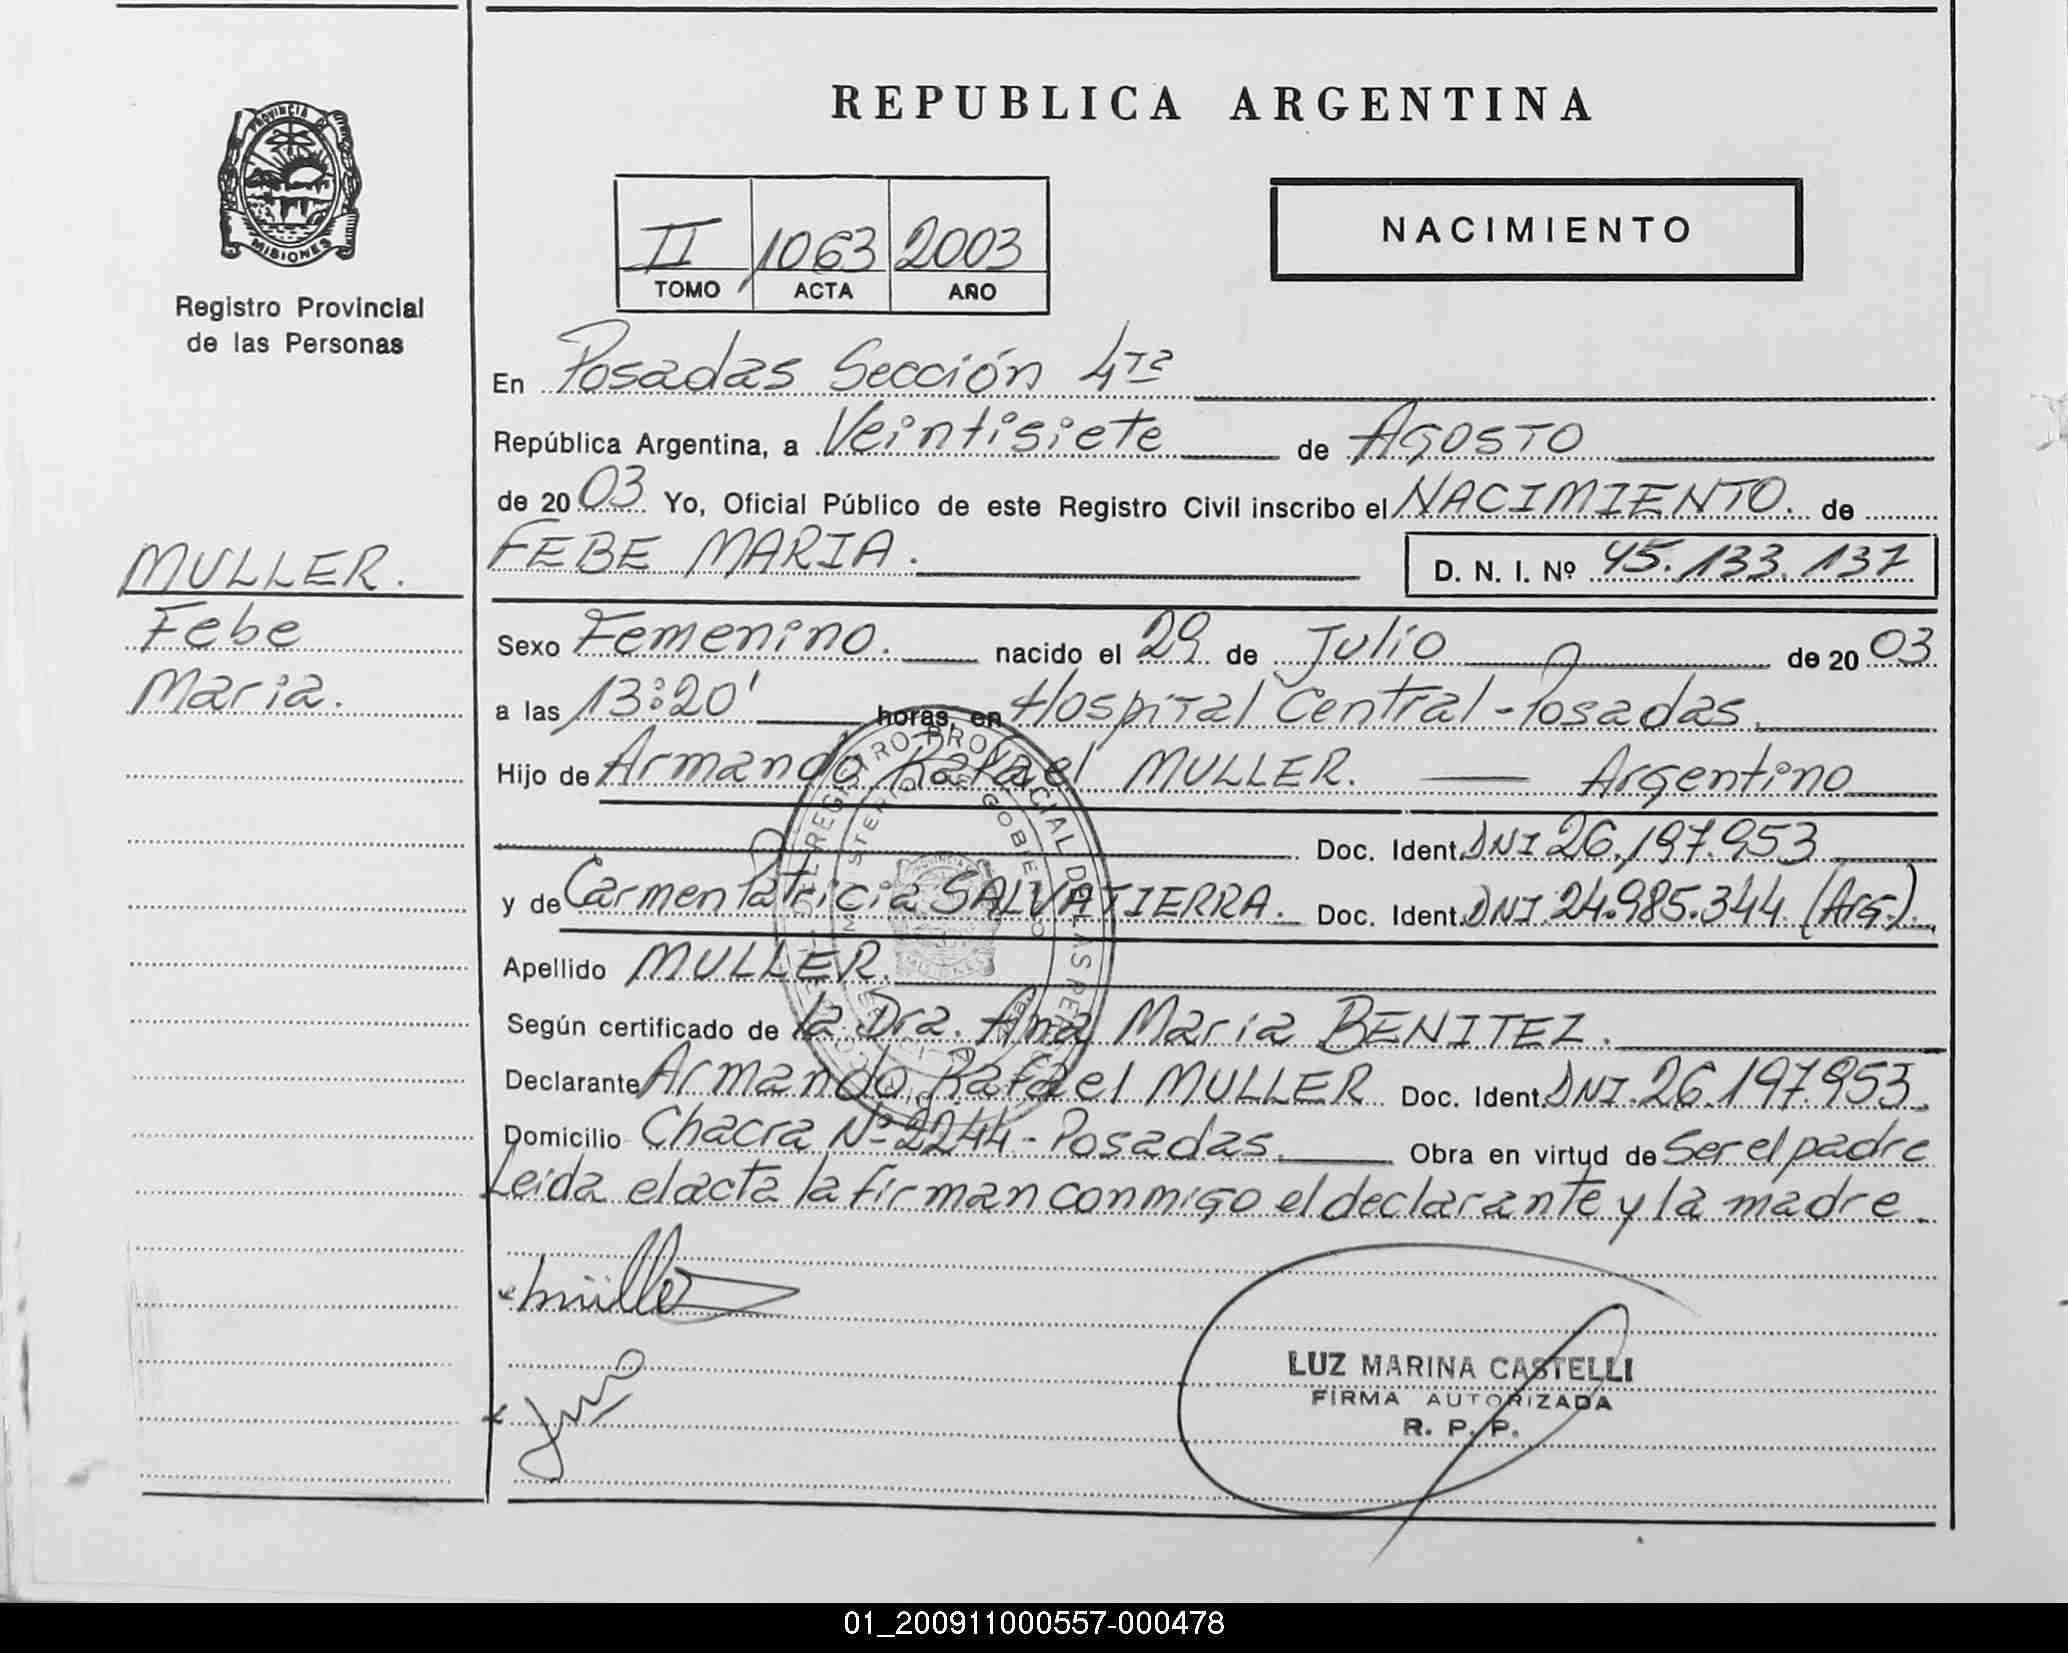 REPUBLICA ARGENTINA
PROVINCIA DE
MISIONES
Registro Provincial
de las Personas
II 1063 2003
TOMO ACTA AÑO
NACIMIENTO
En Posadas Sección 4ta
República Argentina, a Veintisiete de Agosto
de 2003 Yo, Oficial Público de este Registro Civil inscribo el NACIMIENTO. de
FEBE MARIA. D. N. I. Nº 45.133.137
MULLER.
Febe
Maria.
Sexo Femenino. nacido el 29 de Julio de 2003
a las 13:20' horas, en Hospital Central - Posadas.
Hijo de Armando Rafael MULLER. Argentino
Doc. Ident. DNI 26.197.953
y de Carmen Patricia SALVATIERRA. Doc. Ident. DNI. 24.985.344 (Arg.).
Apellido MULLER.
Según certificado de la Dra. Ana Maria BENITEZ.
Declarante Armando Rafael MULLER Doc. Ident. DNI. 26.197.953.
Domicilio Chacra Nº 2244 - Posadas. Obra en virtud de Ser el padre
Leida el acta la firman conmigo el declarante y la madre.
REGISTRO PROVINCIAL DE LAS
MINISTERIO DE GOBIERNO
müller
LUZ MARINA CASTELLI
FIRMA AUTORIZADA
R. P. P.
01_200911000557-000478